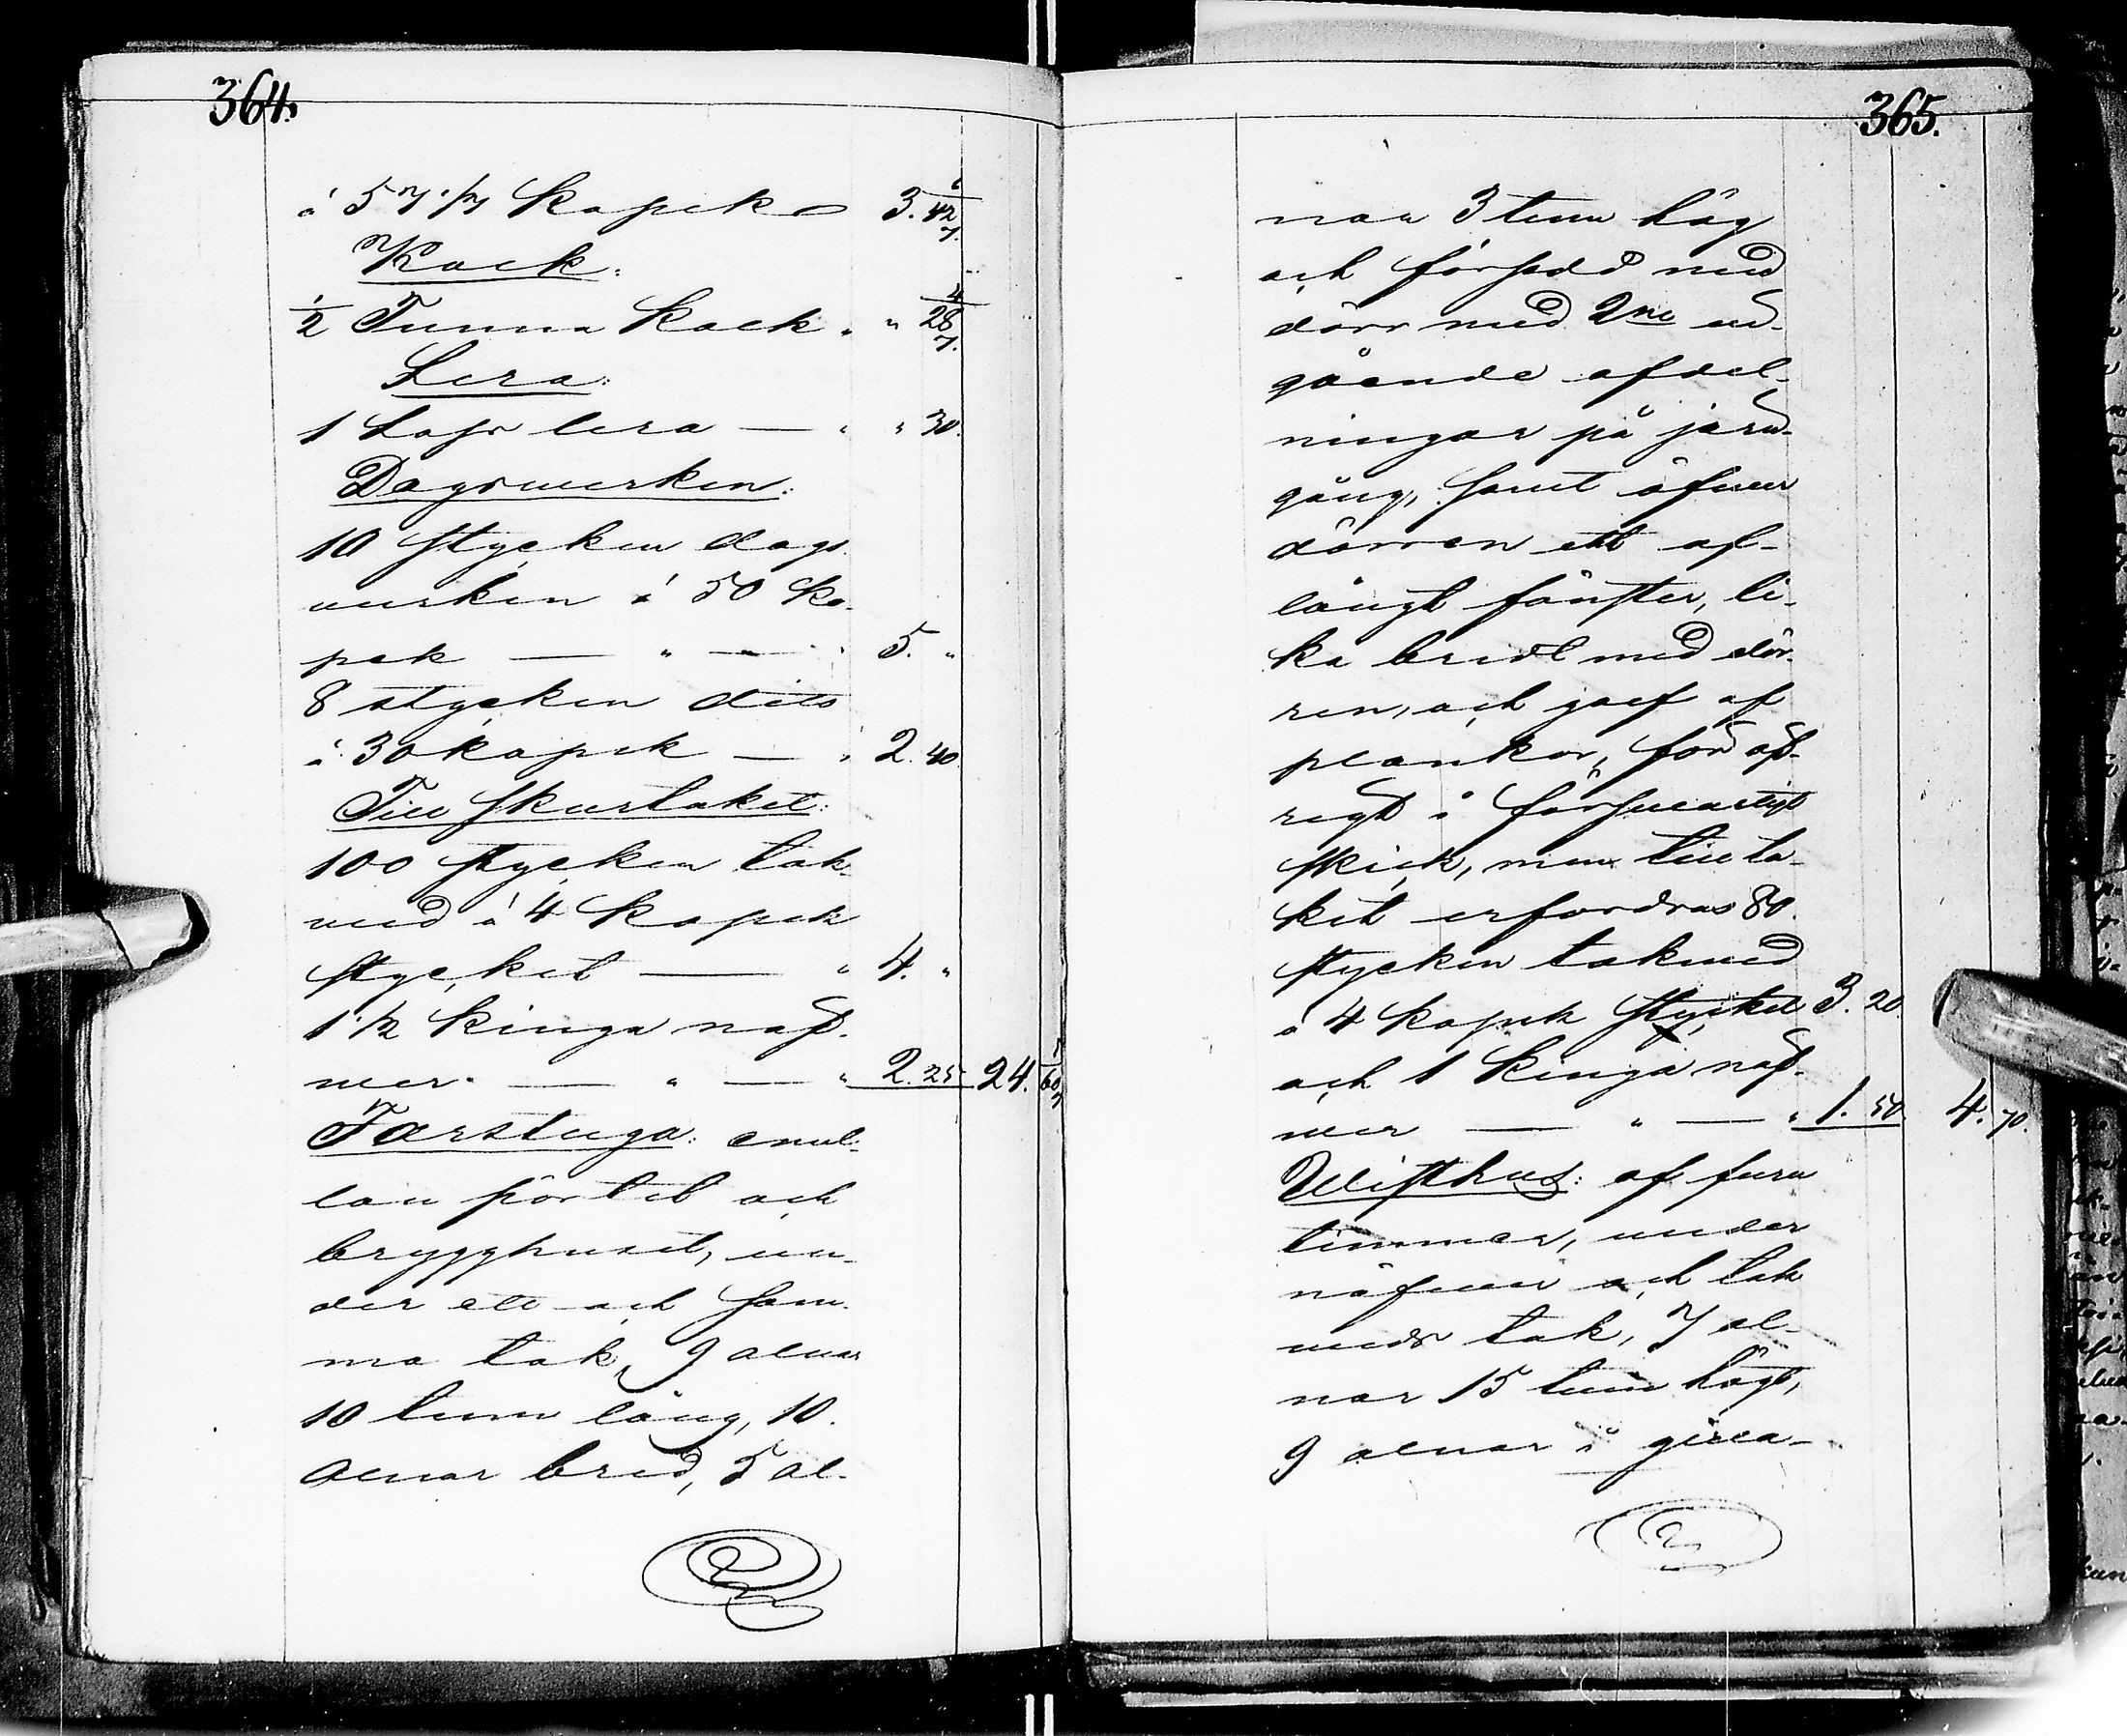 364.
á 57 1/7 kopek 3. 42 6/7.
Kalk:
1/2 Tunna kalk " " 28 4/7.
Lera:
1 Lass lera — " " 30.
Dagsverken:
10 stycken dags
verken á 50 ko-
pek — " — " 5. "
8 stycken dito
á 30 kopek — " 2. 40.
Till skurtaket:
100 stycken tak-
ved á 4 kopek
stycket — " 4. "
1 1/2 kinga näf-
ver — " — " 2. 25 24. 60 5/7
Farstuga: emel-
lan pörtet och
brygghuset, un-
der ett och sam-
ma tak, 9 alnar
10 tum lång, 10
alnar bred, 5 al-
365.
nar 3 tum hög
och försedd med
dörr med 2ne ut-
gående afdel-
ningar på jern-
gång, samt öfver
dörren ett af-
långt fönster, li-
ka bredt med dör-
ren, och golf af
plankor, för öf-
rigt i försvarligt
skick, men till ta-
ket erfordras 80
stycken takved
á 4 kopek stycket 3. 20.
och 1 kinga näf-
ver — " — " 1. 50. 4. 70.
Visthus: af furu
timmer, under
näfver och tak
veds tak, 7 al-
nar 15 tum högt,
9 alnar i